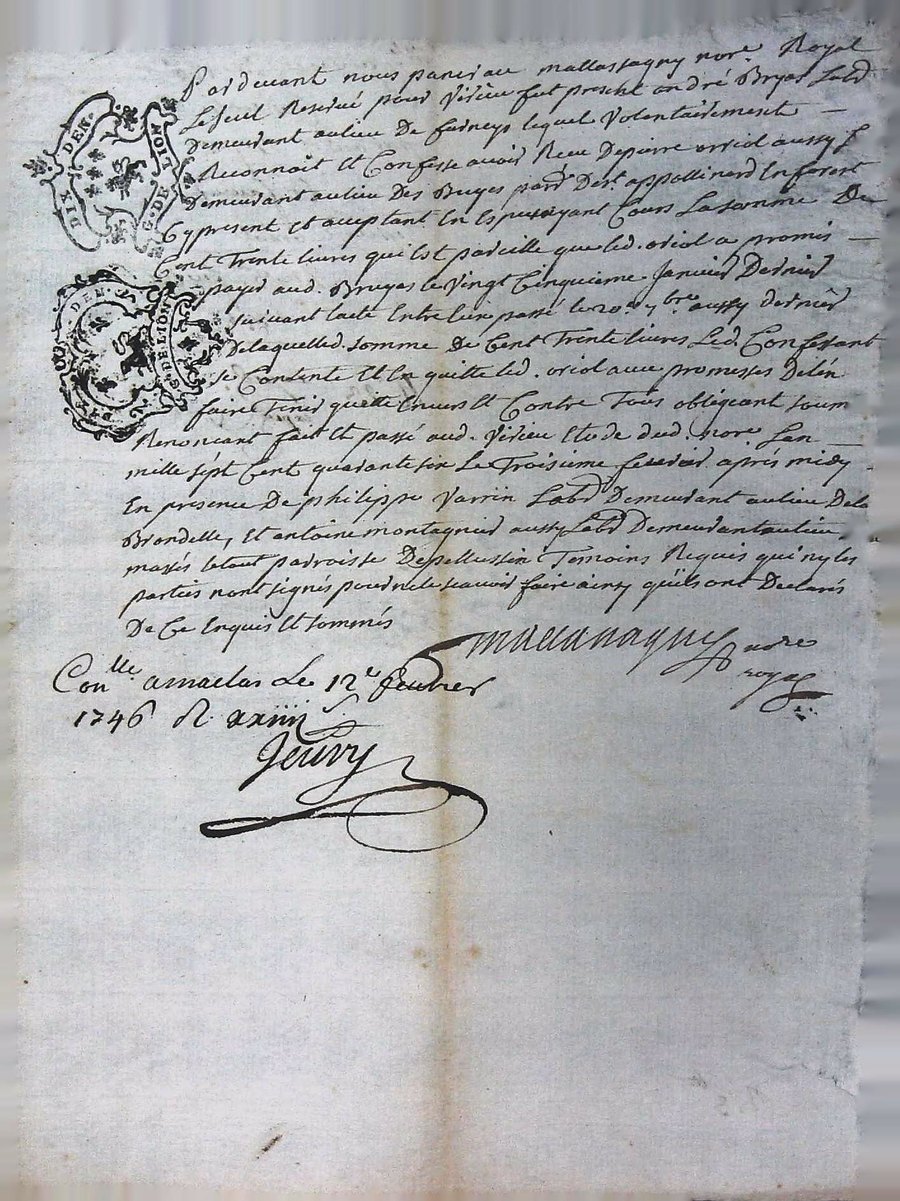 DIX DEN. G. DE LION
DIX DEN. G. DE LION
Pardevant nous pancrace mallassagny nore. Royal
Le seul Reservé pour Virieu fut present andré Bruyas Labr
Demeurant au lieu De farneys lequel Volontairement
Reconnoit Et Confesse avoir Receu De pierre oriol aussy L
Demeurant au lieu Des Bruyes parse De st. appollinard En forest
Cy present et acceptant En Especes ayant Cours La somme De
Cent Trente livres qui Est pareille que led. oriol a promis
payer aud. Bruyas le Vingt Cinquieme Janvier Dernier
suivant lacte Entre Eux passé le 20e. 7bre aussy dernier
De laquelle d. somme De Cent Trente livres Led. Confessant
se Contente Et En quitte led. oriol avec promesses De l'en
faire Tenir quitte Envers Et Contre Tous obligeant soum
Renoncant fait Et passé aud. Virieu Etude dud. nore. Lan
mille sept Cent quarante six Le Troisieme fevrier après midy
En presence De philippe Varrin Labr Demeurant au lieu De la
Brondelle, Et antoine montagnier aussy Labr Demeurant au lieu
mazés le tout parroisse De pellussin Temoins Requis qui ny les
parties nont signés pour ne le scavoir faire ainsy quils ont Declarés
De Ce Enquis Et sommés
nore
royal
Conlle a maclas Le 12e feuvrier
1746 R xxiiii s